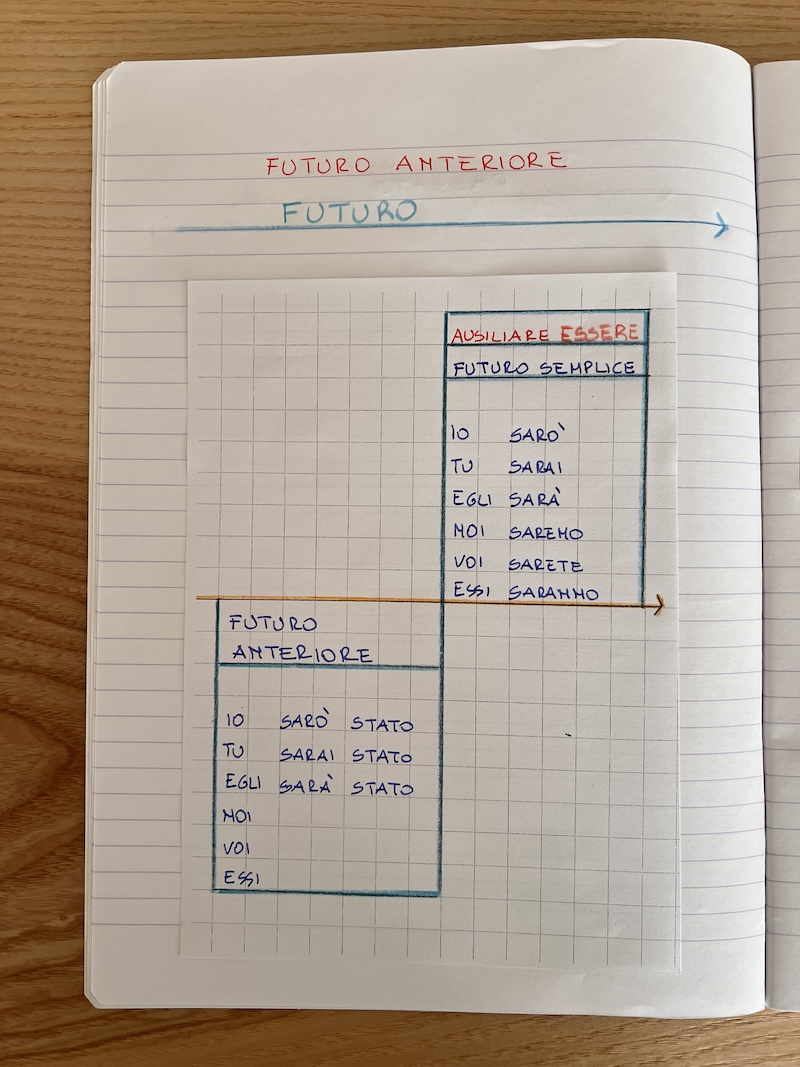 FUTURO ANTERIORE
FUTURO
AUSILIARE ESSERE
FUTURO SEMPLICE
IO SARÒ
TU SARAI
EGLI SARÀ
NOI SAREMO
VOI SARETE
ESSI SARANNO
FUTURO
ANTERIORE
IO SARÒ STATO
TU SARAI STATO
EGLI SARÀ STATO
NOI
VOI
ESSI